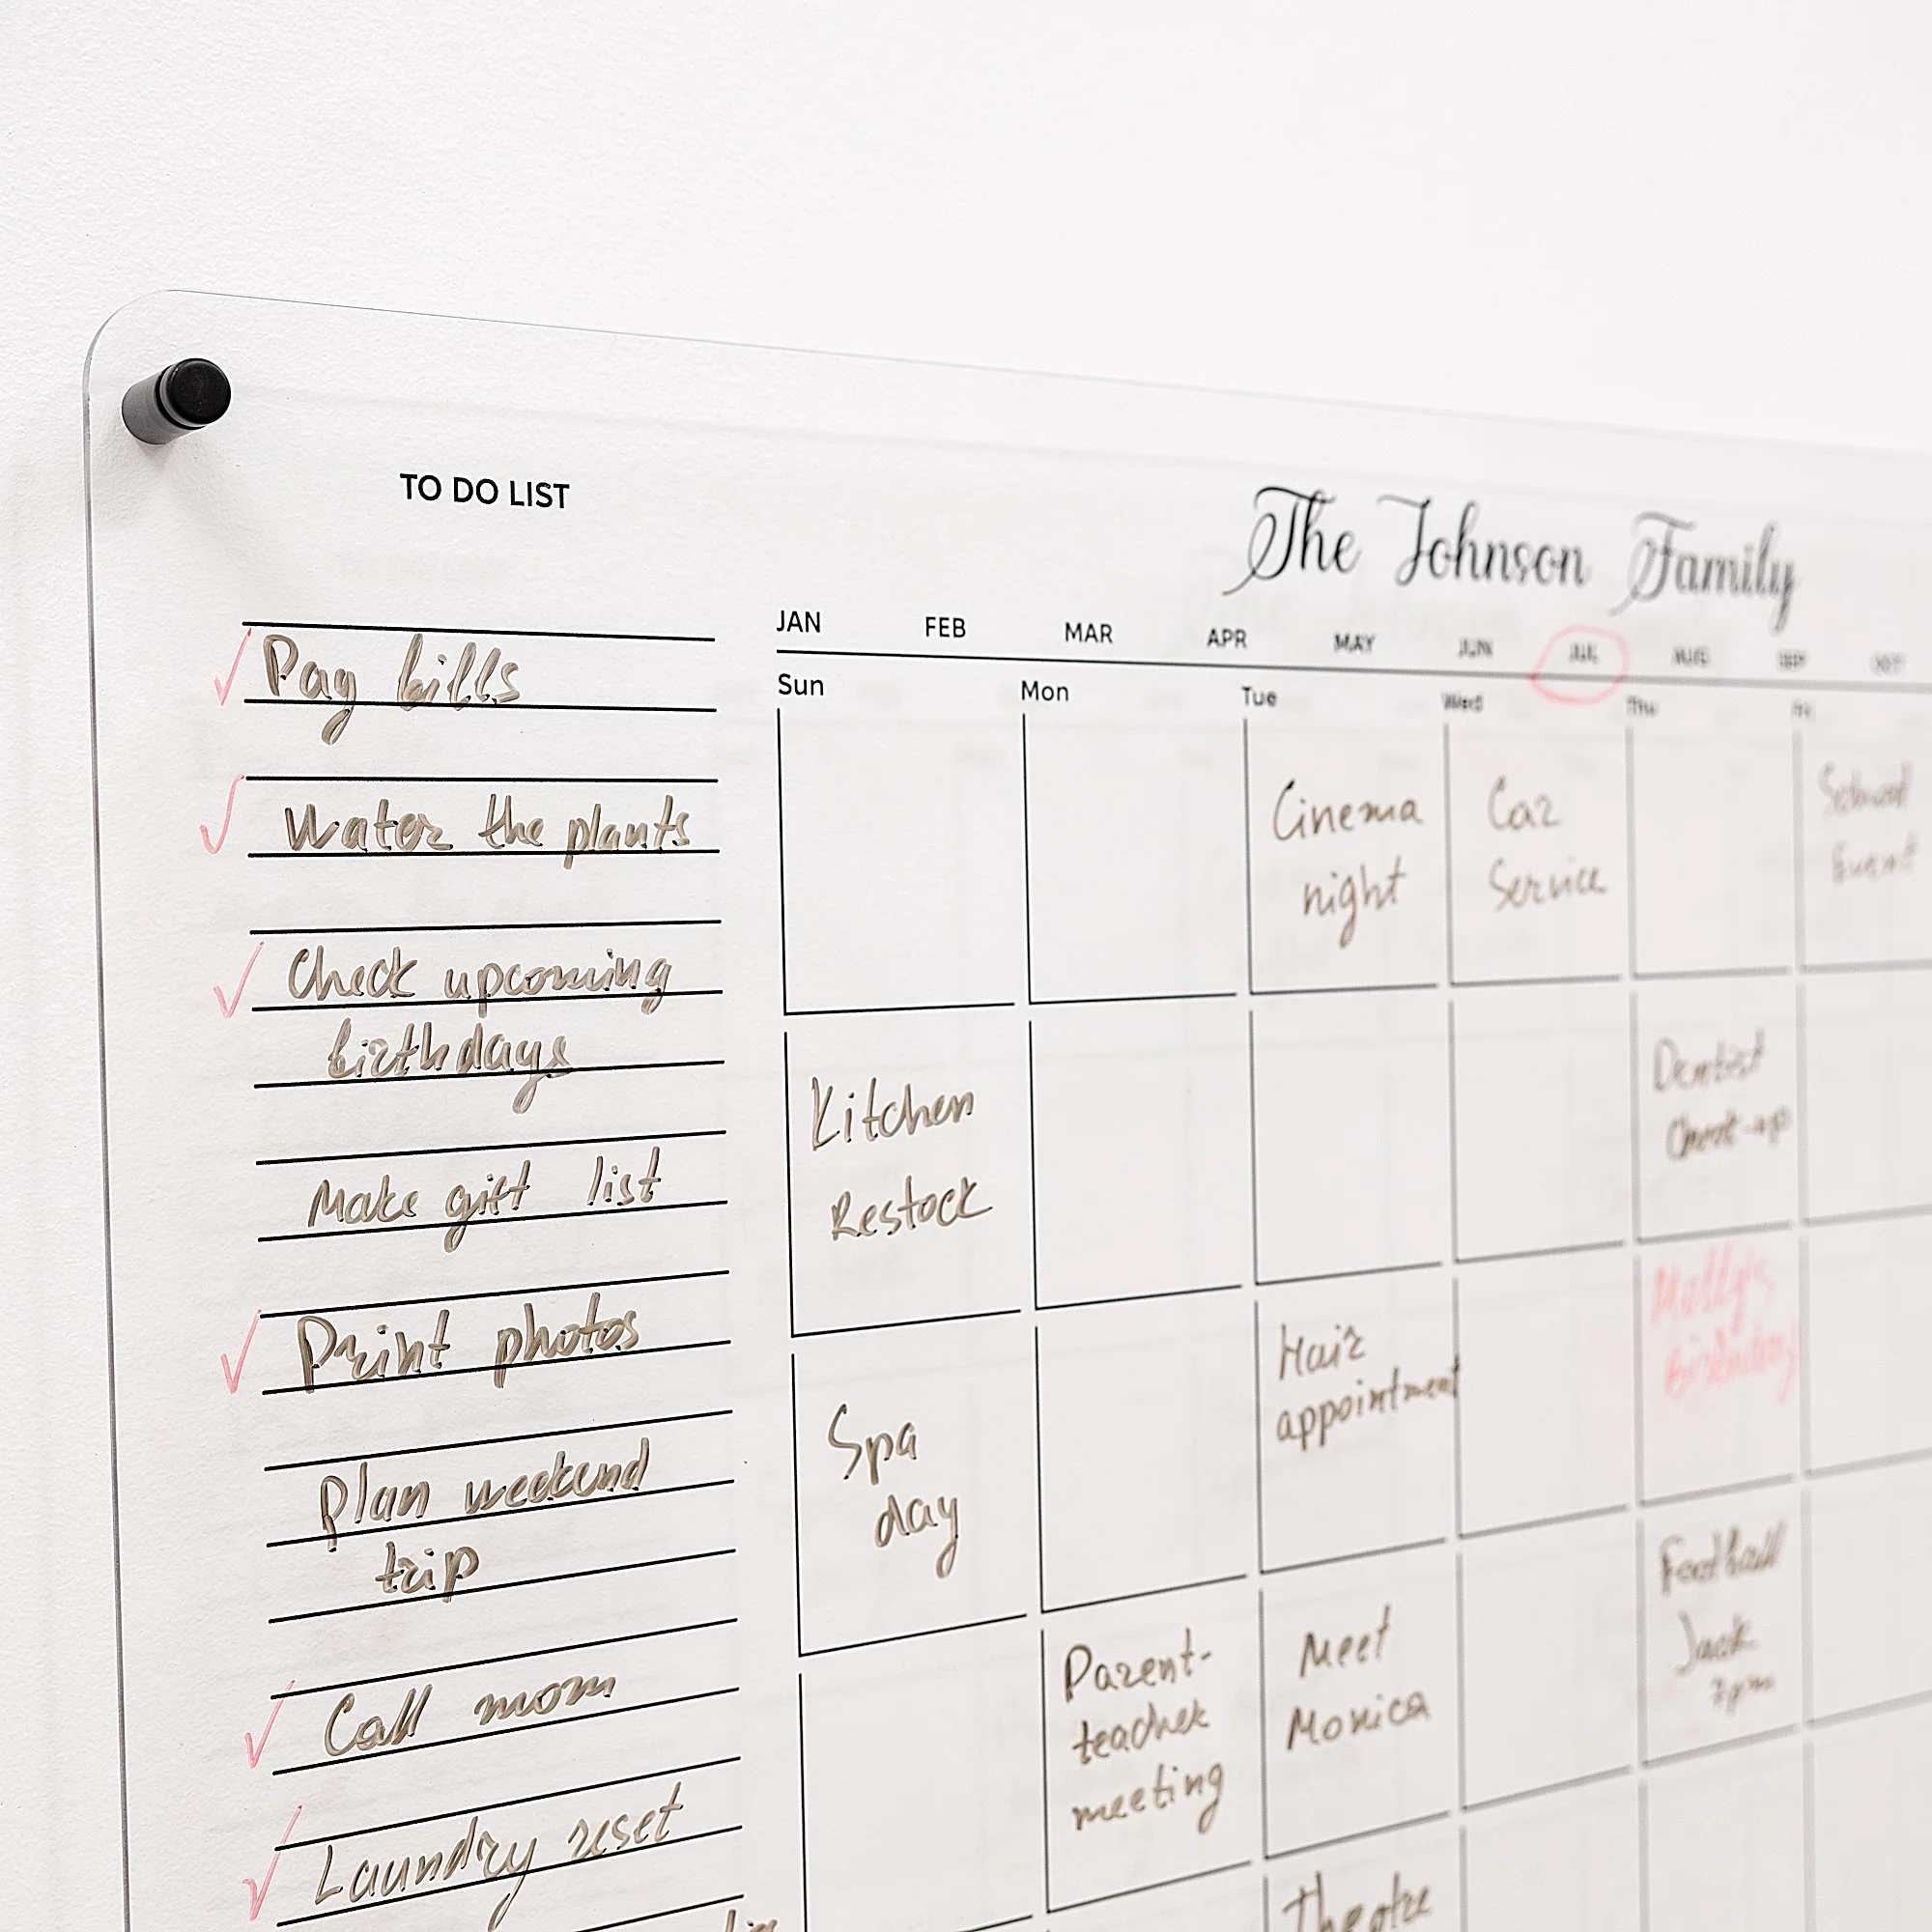 TO DO LIST
Pay bills
Water the plants
Check upcoming
birthdays
Make gift list
Print photos
Plan weekend
trip
Call mom
Laundry reset
The Johnson Family
JAN FEB MAR APR MAY JUN JUL AUG SEP OCT
Sun Mon Tue Wed Thu Fri
Cinema
night
Car
Service
School
Event
Kitchen
Restock
Dentist
Check-up
Spa
day
Hair
appointment
Molly's
birthday
Parent-
teacher
meeting
Meet
Monica
Football
Jack
7pm
Theatre